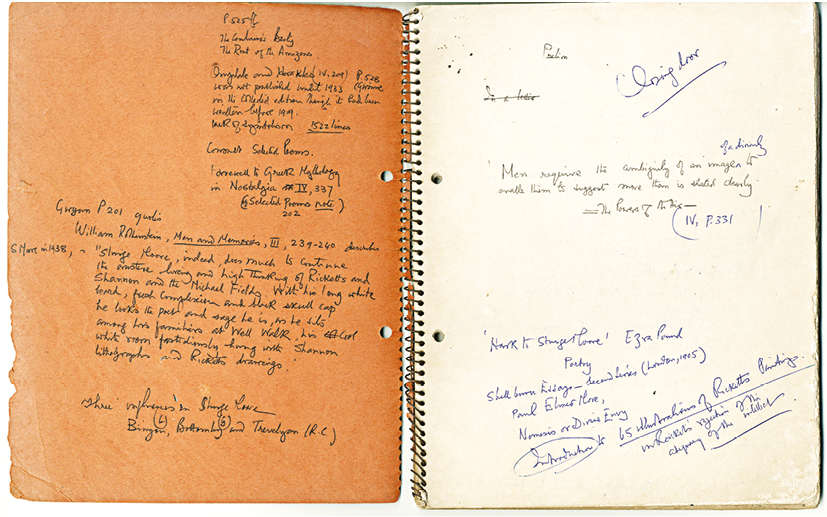 P. 525 ff
The Centaur's Booty
The Rout of the Amazons
Omphale and Herakles (IV. 209) P. 528
was not published until 1933 (Gwynn
in the collected edition though it had been
written before 1909.
1522 lines
Selected Poems.
Farewell to Greek Mythology
in Nostalgia IV, 337
(Selected Poems note)
202
P 201 quotes
William Rothenstein, Men and Memories, III, 239-240 describes
S Moore in 1938, -
"Sturge Moore, indeed, does much to continue
the austere living and high thinking of Ricketts and
Shannon and the Michael Fields. With his long white
beard, fresh complexion and black skull cap
he looks the poet and sage he is, as he sits
among his familiars at Well Walk, his cool
white room fastidiously hung with Shannon
lithographs and Ricketts drawings.
Three influences on Sturge Moore
(L) (G)
Binyon, Bottomley and Trevelyan (R.C)
Closing door
In a
of a divinity
'Men require the ambiguity of an image to
enable them to suggest more than is stated clearly
The Powers of the Air
(IV, P.331)
'Hark to Sturge Moore' Ezra Pound
Poetry
Shelburne Essays - second series (London, 1905)
Paul Elmer More,
Nemesis or Divine Envy
Introduction to 65 illustrations of Ricketts Paintings.
on Ricketts rejection of the
adequacy of the intellect